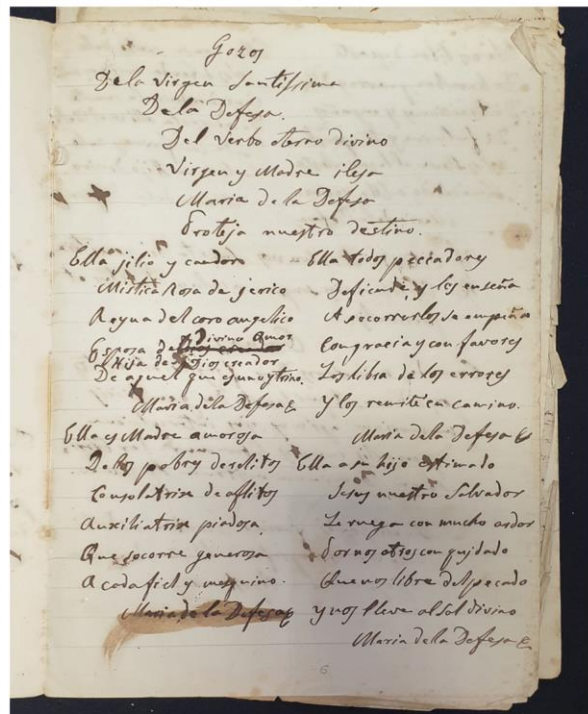 Gozos
De la Virgen Santissima
De la Defesa.
Del Verbo eterno divino
Virgen y Madre ilesa
Maria de la Defesa
Proteja nuestro destino.
Ella jilio y candor
Mistica Rosa de jerico
Reyna del coro angelico
Esposa del Divino Amor
Hija de Dios creador
De aquel que es uno y trino.
Maria de la Defesa &
Ella es Madre amorosa
De los pobres
Consolatrix de aflitos
Auxiliatrix piadosa
Que socorre generosa
A cada fiel y mesquino.
Maria de la Defesa &
Ella todos peccadores
Deficende, y les enseña
A socorrerlos se empeña
Con gracia y con favores
Los libra de los errores
Y los remite en camino.
Maria della Defesa &
Ella a su hijo estimado
Jesus nuestro Salvador
Le ruega con mucho ardor
Por nos otros con quidado
Que nos libre del pecado
y nos lleve al Sol divino
Maria della Defesa &
6